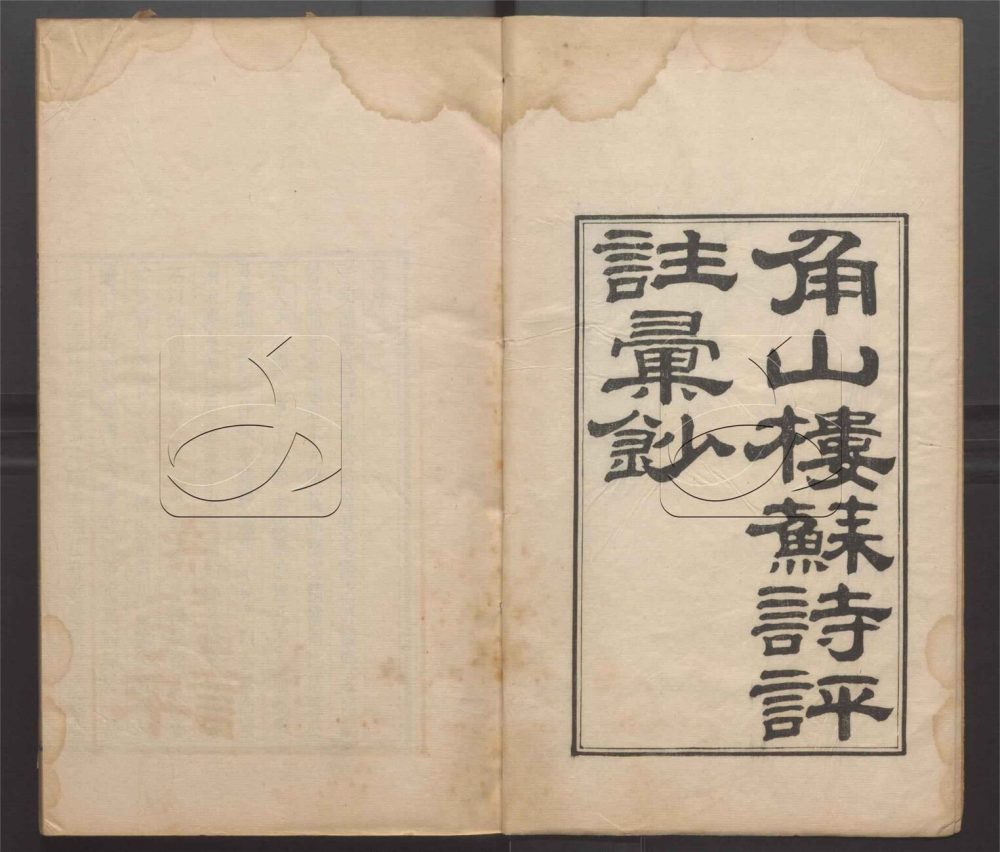 角山樓蘇詩評
註彙鈔